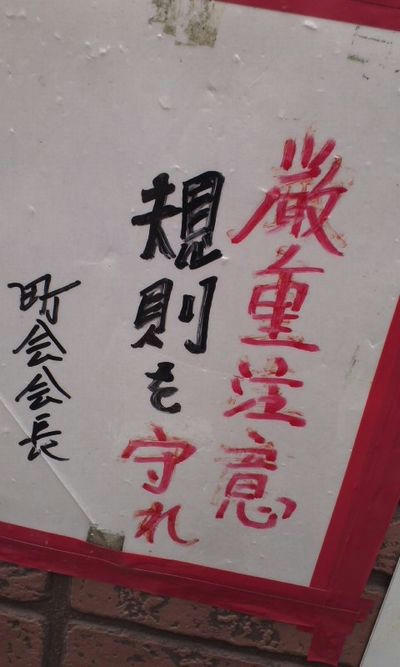 厳重注意
規則を守れ
町会会長